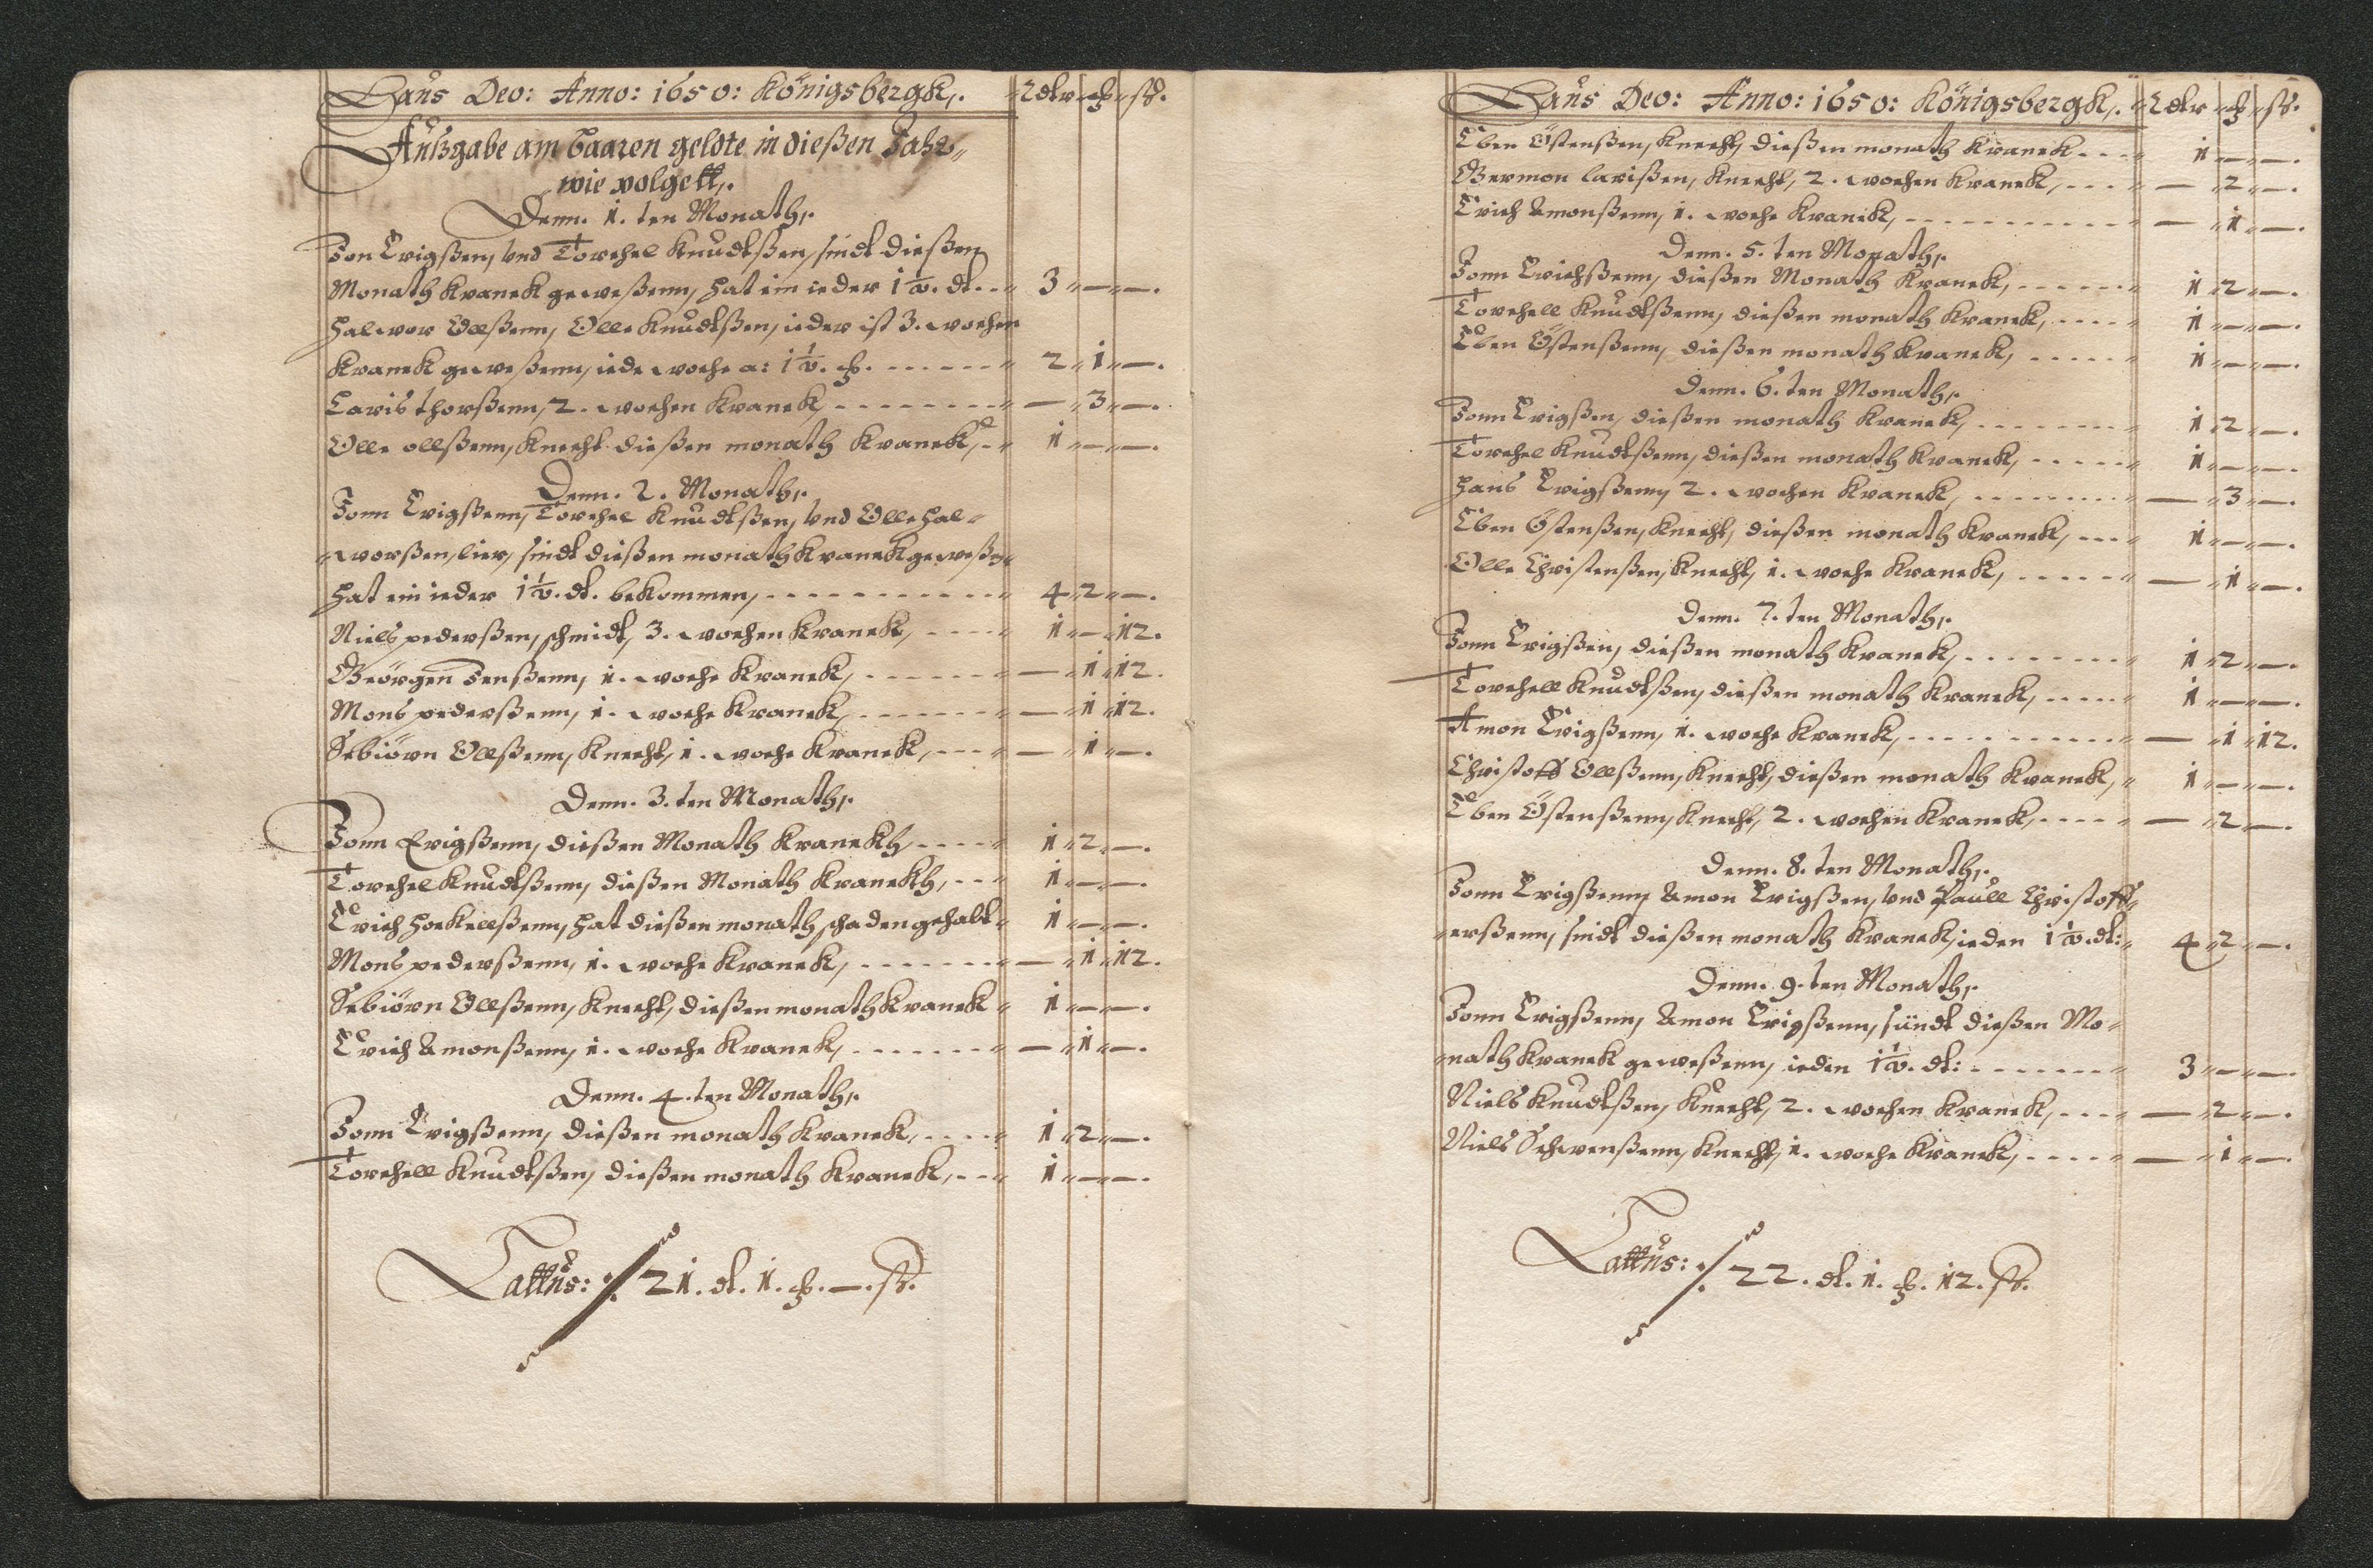 Laus Deo: Anno: 1650: Königsbergk,. Rdtr ꝗ ß.
Außgabe am baaren geldte in dießen Jahr,,
wie volgett,.
Denn. 1. ten Monath,.
Jon Erigßen, und Torchel Knudtßen, sindt dießen
Monath kranck geweßenn, hat ein ieder 1½. dt. - 3 — —.
Halvor Ollßenn, Olle Knudtßen, ieder ist 3. wochen
kranck geweßenn, iede woche a: 1½. ꝗ. - - - 2 1 —.
Laris thorßenn, 2. wochen kranck, - - - — 3 —.
Olle ollßenn, knecht dießen monath kranck, - 1 — —.
Denn. 2. Monath,.
Jonn Erigßenn, Torchel Knudtßen, und Olle Hal-
worßen, lier, sindt dießen monath kranck geweßen
hat ein ieder 1½. dt. bekommen, - - - 4 2 —.
Niels pederßen, schmidt, 3. wochen kranck, - - - 1 — 12.
Geörgen Jenßenn, 1. woche kranck, - - - — 1 12.
Mons pederßenn, 1. woche kranck, - - - — 1 12.
Sebiörn Ollßenn, knecht, 1. woche kranck, - - - — 1 —.
Denn. 3. ten Monath,.
Jonn Erigßenn, dießen Monath kranckh, - - - 1 2 —.
Torchel Knudtßenn, dießen Monath kranckh, - - - 1 — —.
Erich Hockellßenn, hat dießen monath schaden gehabt 1 — —.
Mons pederßenn, 1. woche kranck, - - - — 1 12.
Sebiörn Ollßenn, knecht, dießen monath kranck 1 — —.
Erich Amonßenn, 1. woche kranck, - - - — 1 —.
Denn. 4. ten Monath,.
Jonn Erigßenn, dießen monath kranck, - - - 1 2 —.
Torchell Knudtßen, dießen monath kranck, - - - 1 — —.
Lattus: ⁒ 21. dt. 1. ꝗ. —. ß.
Laus Deo: Anno: 1650: Königsbergk,. Rdtr ꝗ ß.
Eben Östenßen, knecht, dießen monath kranck - - - 1 — —.
Germon larißen, knecht, 2. wochen kranck, - - - — 2 —.
Erich Amonßenn, 1. woche kranck, - - - — 1 —.
Denn. 5. ten Monath,.
Jonn Erichßenn, dießen Monath kranck, - - - 1 2 —.
Torchell Knudtßenn, dießen monath kranck, - - - 1 — —.
Eben Östenßenn, dießen monath kranck, - - - 1 — —.
Denn. 6. ten Monath,.
Jonn Erigßen, dießen monath kranck, - - - 1 2 —.
Torchel Knudtßenn, dießen monath kranck, - - - 1 — —.
Hans Erigßenn, 2. wochen kranck, - - - — 3 —.
Eben Östenßen, knecht, dießen monath kranck, - - - 1 — —.
Olle Christenßen, knecht, 1. woche kranck, - - - — 1 —.
Denn. 7. ten Monath,.
Jonn Erigßen, dießen monath kranck, - - - 1 2 —.
Torchell Knudtßen, dießen monath kranck, - - - 1 — —.
Amon Erigßenn, 1. woche kranck, - - - — 1 12.
Christoff Ollßenn, knecht, dießen monath kranck, 1 — —.
Eben Östenßenn, knecht, 2. wochen kranck, - - - — 2 —.
Denn. 8. ten Monath,.
Jonn Erigßenn, Amon Erigßen, und Paull Christoff-
-erßenn, sindt dießen monath kranck, ieden 1½. dt: 4 2 —.
Denn. 9. ten Monath,.
Jonn Erigßenn, Amon Erigßenn, sündt dießen Mo-
-nath kranck geweßenn, ieden 1½. dt: - - - 3 — —.
Niels Knudtßen, knecht, 2. wochen kranck, - - - — 2 —.
Niels Schwenßenn, knecht, 1. woche kranck, - - - — 1 —.
Lattus: ⁒ 22. dt. 1. ꝗ. 12. ß.